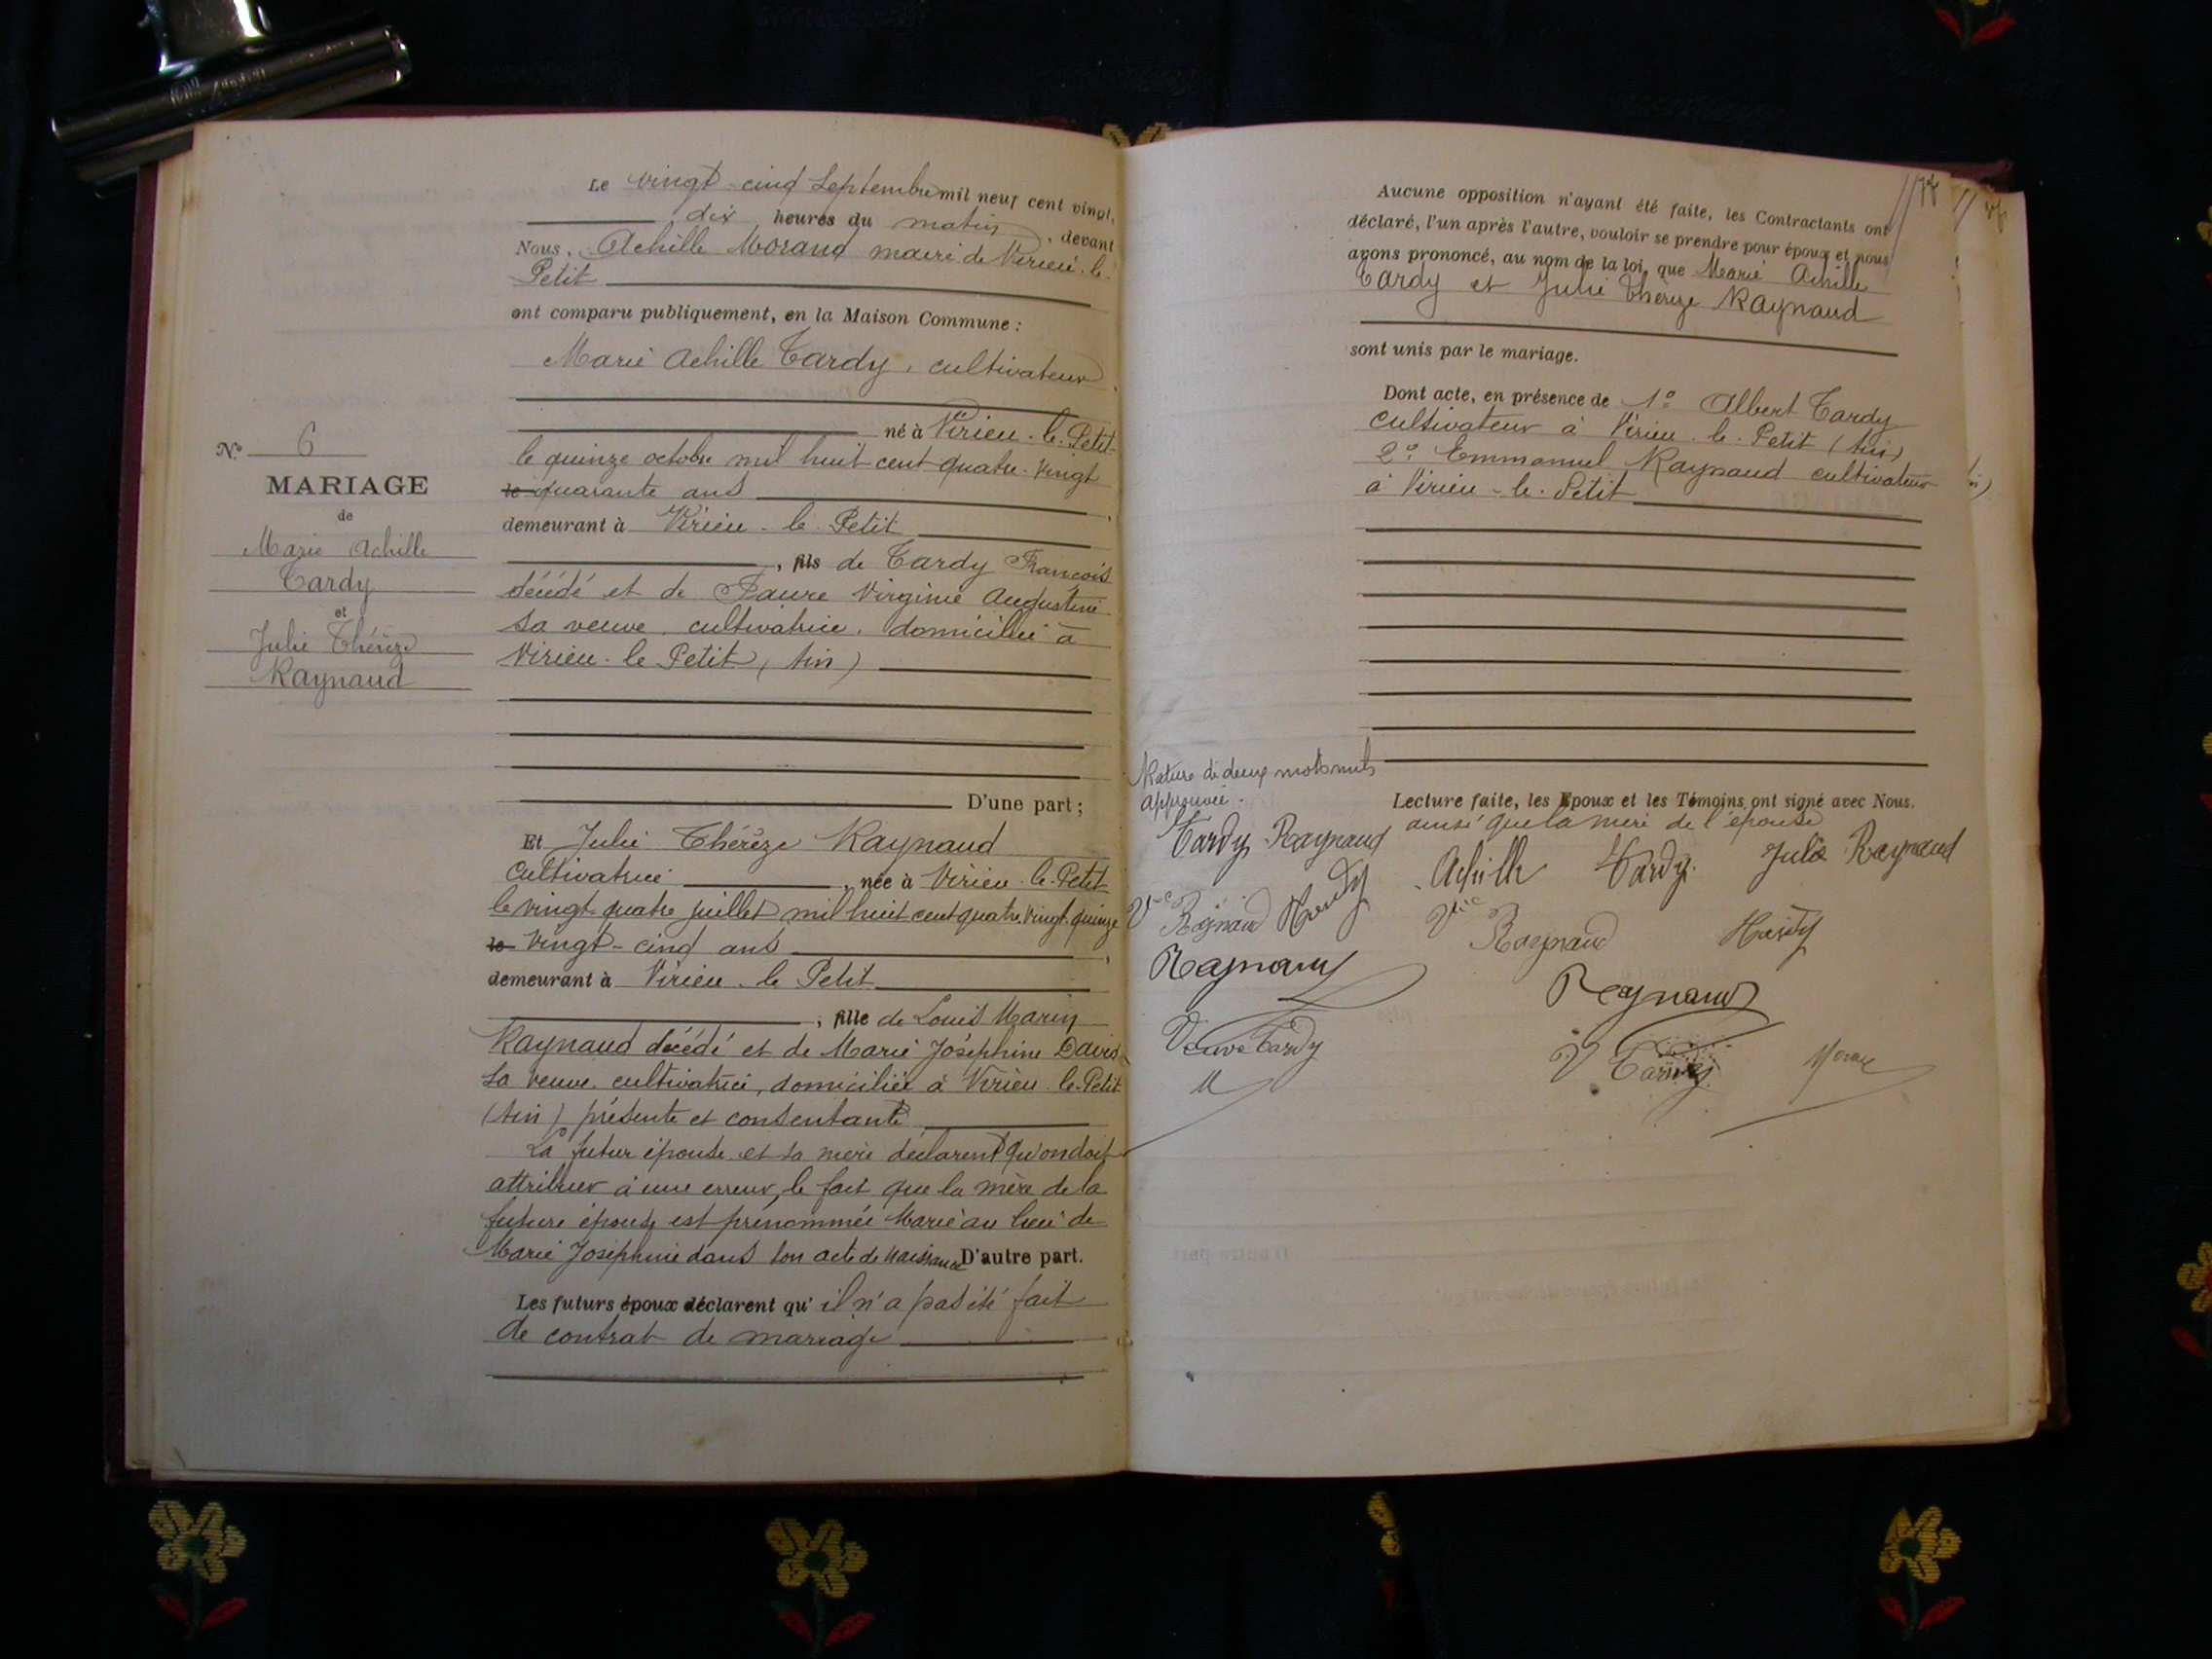 Le vingt-cinq Septembre mil neuf cent vingt,
dix heures du matin, devant
Nous, Achille Morand maire de Virieu-le-
Petit
ont comparu publiquement, en la Maison Commune :
Marie Achille Tardy, cultivateur
né à Virieu-le-Petit
le quinze octobre mil huit cent quatre-vingt
le quarante ans
demeurant à Virieu-le-Petit
, fils de Tardy François
décédé et de Faure Virginie Augustine
sa veuve, cultivatrice, domiciliée à
Virieu-le-Petit (Ain)
D'une part ;
Et Julie Thérèze Raynaud
Cultivatrice, née à Virieu-le-Petit
le vingt quatre juillet mil huit cent quatre-vingt-quinze
le vingt-cinq ans
demeurant à Virieu-le-Petit
, fille de Louis Marin
Raynaud décédé et de Marie Joséphine
sa veuve cultivatrice, domiciliée à Virieu-le-Petit
(Ain) présente et consentante
La futur épouse et sa mère déclarent qu'on doit
attribuer à une erreur, le fait que la mère de la
future épouse est prénommée Marie au lieu de
Marie Joséphine dans son acte de naissance D'autre part.
Les futurs époux déclarent qu' il n'a pas été fait
de contrat de mariage
N° 6
MARIAGE
de
Marie Achille
Tardy
et
Julie Thérèze
Raynaud
Aucune opposition n'ayant été faite, les Contractants ont
déclaré, l'un après l'autre, vouloir se prendre pour époux et nous
avons prononcé, au nom de la loi, que Marie Achille
Tardy et Julie Thérèze Raynaud
sont unis par le mariage.
Dont acte, en présence de 1° Albert Tardy
cultivateur à Virieu-le-Petit (Ain)
2° Emmanuel Raynaud cultivateur
à Virieu-le-Petit
Rature de deux mots nuls
approuvée.
Lecture faite, les Epoux et les Témoins ont signé avec Nous.
ainsi que la mère de l'épouse
Tardy Raynaud
Achille Tardy Julie Raynaud
Vve Raynaud
Vve Raynaud
Raynaud
Raynaud
Veuve Tardy
V Tardy Morand